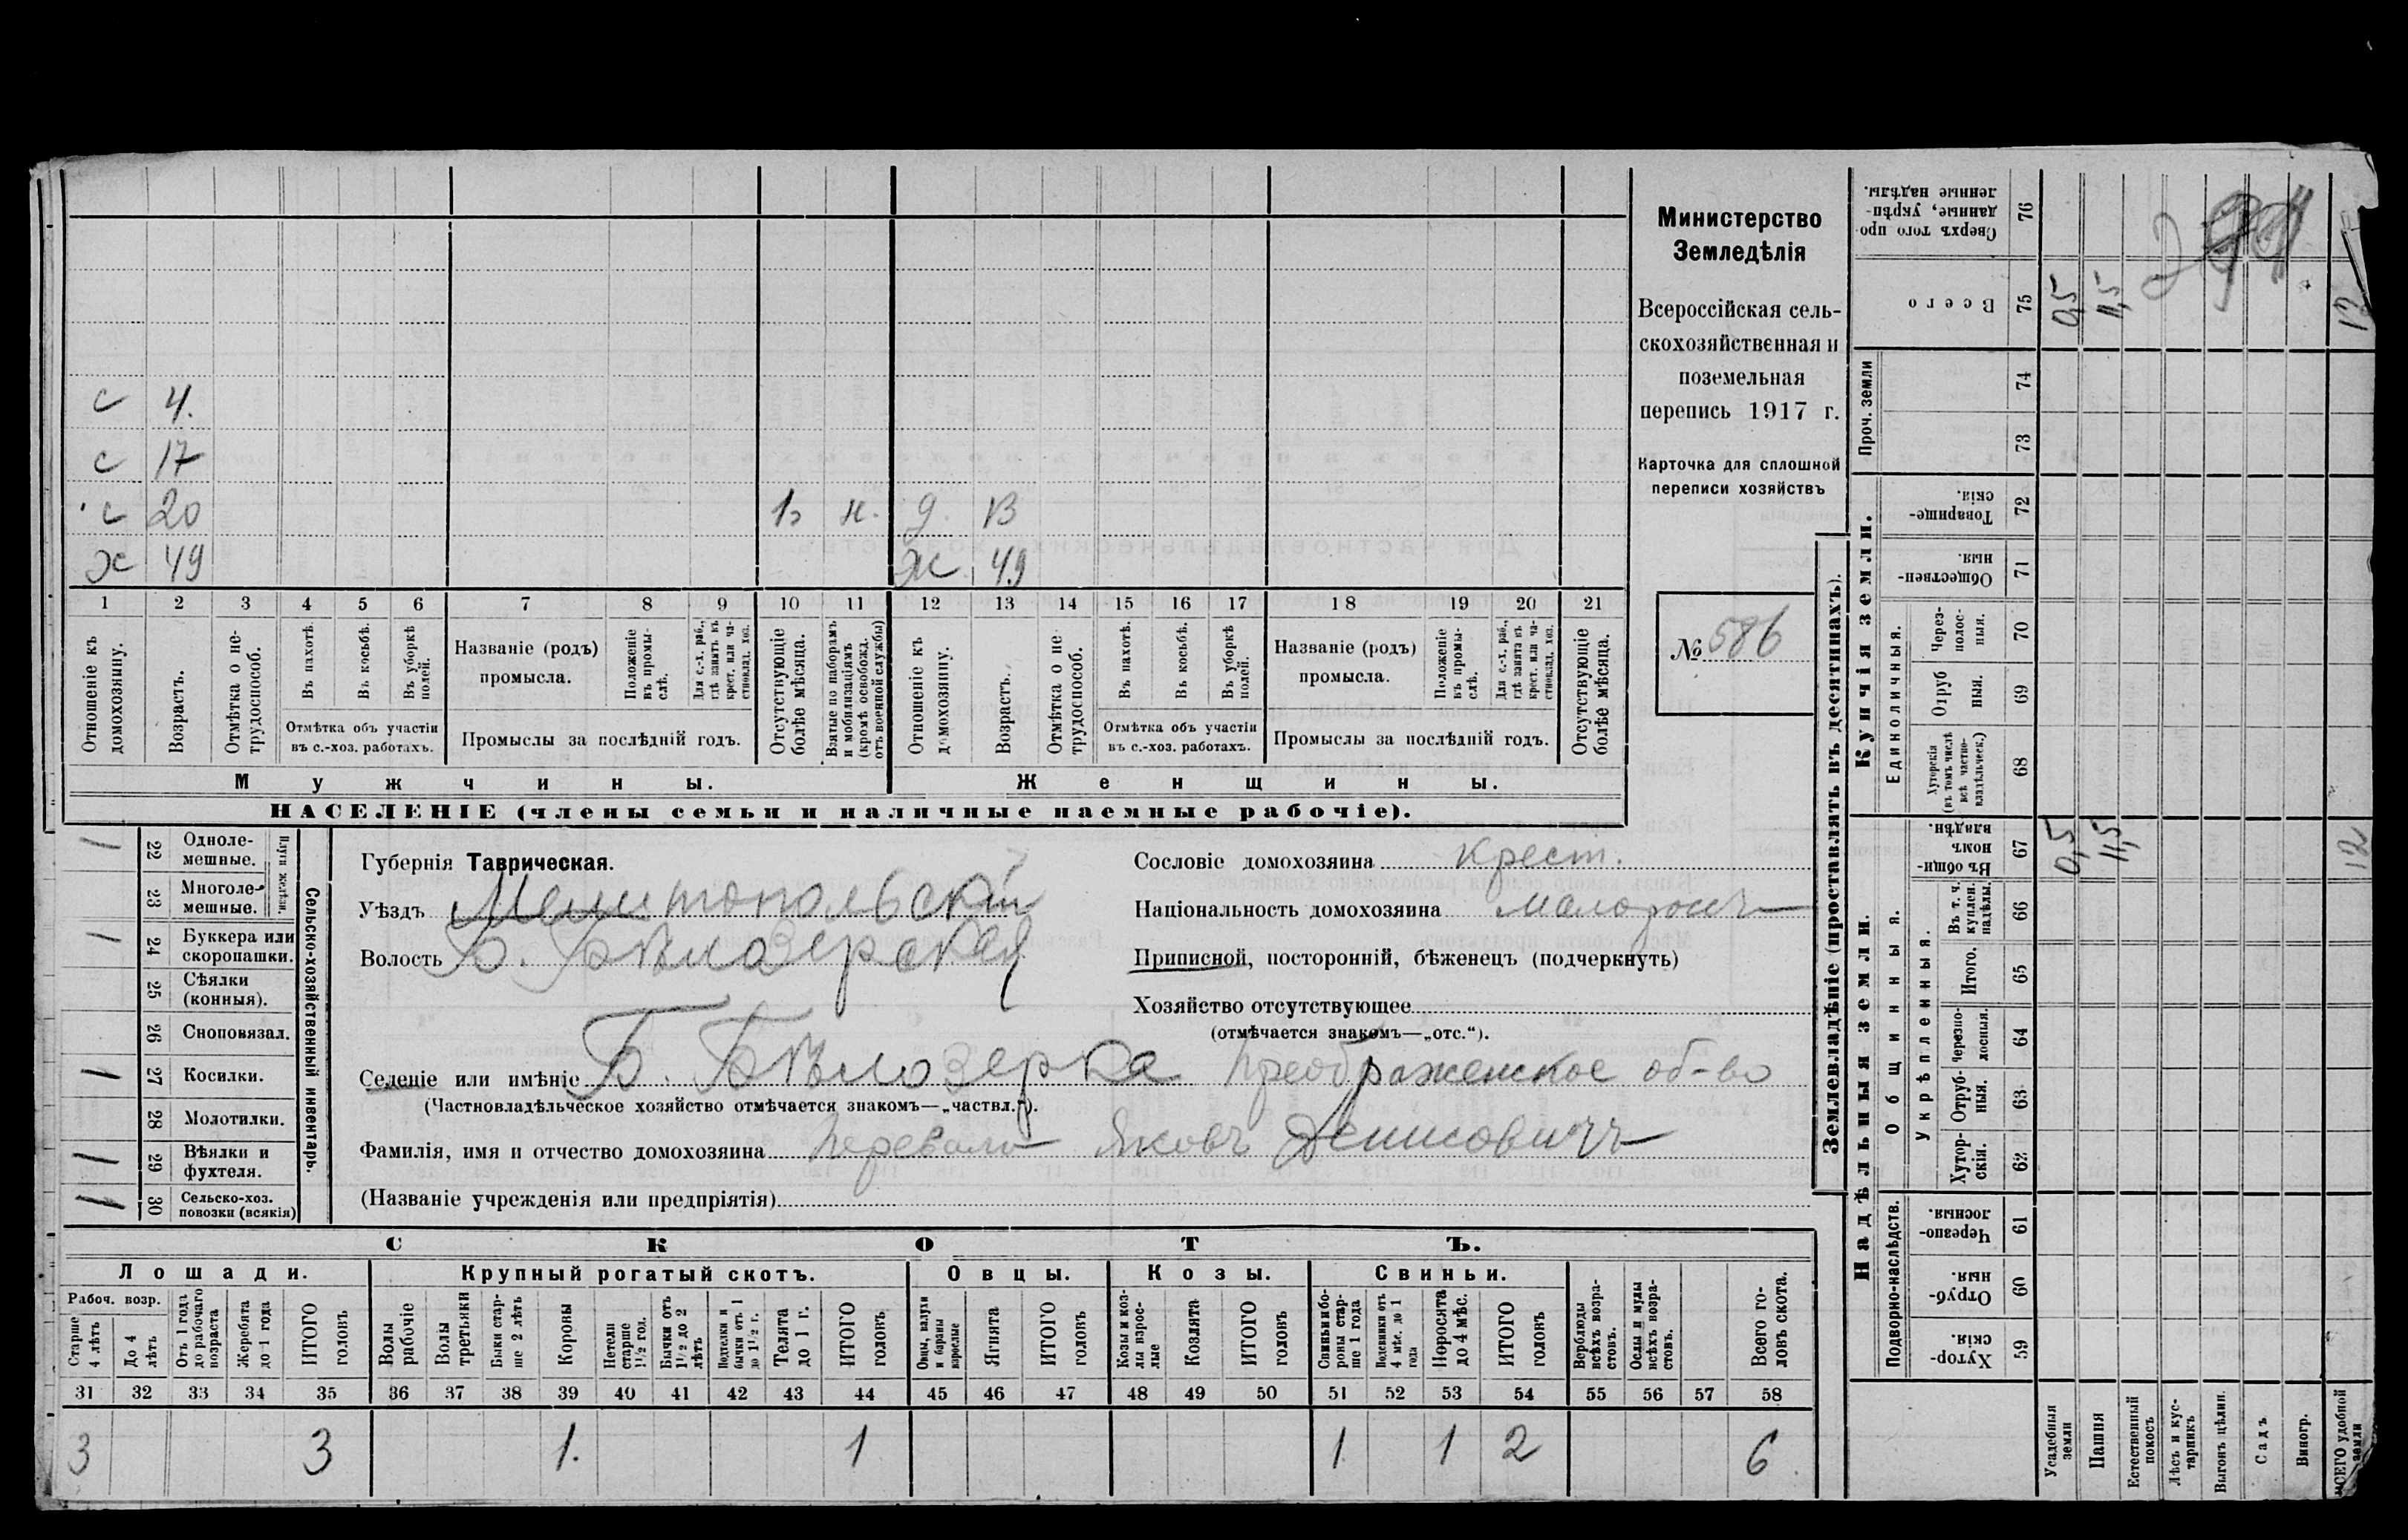 с 4.
с 17
с 20 1ь н. д. 13
х 49 Ж 49
1 2 3 4 5 6 7 8 9 10 11 12 13 14 15 16 17 18 19 20 21
Отношеніе къ домохозяину.
Возрастъ.
Отмѣтка о не-трудоспособ.
Въ пахотѣ.
Въ косьбѣ.
Въ уборкѣ полей.
Отмѣтка объ участіи
въ с.-хоз. работахъ.
Названіе (родъ)
промысла.
Положеніе въ промы-слѣ.
Для с.-х. раб., гдѣ занятъ въ крест. или ча-стновлад. хоз.
Промыслы за послѣдній годъ.
Отсутствующіе болѣе мѣсяца.
Взятые по наборамъ и мобилизаціямъ (кромѣ освобожд. отъ военной службы)
Отношеніе къ домохозяину.
Возрастъ.
Отмѣтка о не-трудоспособ.
Въ пахотѣ.
Въ косьбѣ.
Въ уборкѣ полей.
Отмѣтка объ участіи
въ с.-хоз. работахъ.
Названіе (родъ)
промысла.
Положеніе въ промы-слѣ.
Для с.-х. раб., гдѣ занята въ крест. или ча-стновлад. хоз.
Промыслы за послѣдній годъ.
Отсутствующіе болѣе мѣсяца.
Мужчины. Женщины.
НАСЕЛЕНІЕ (члены семьи и наличные наемные рабочіе).
Министерство
Земледѣлія
Всероссійская сель-
скохозяйственная и
поземельная
перепись 1917 г.
Карточка для сплошной
переписи хозяйствъ
№ 586
Сельско-хозяйственный инвентарь.
Плуги желѣзн.
1 22 Одноле-мешные.
23 Многоле-мешные.
1 24 Буккера или скоропашки.
25 Сѣялки (конныя).
26 Сноповязал.
1 27 Косилки.
28 Молотилки.
1 29 Вѣялки и фухтеля.
1 30 Сельско-хоз. повозки (всякія)
Губернія Таврическая.
Уѣздъ Мелитопольскій
Волость Б. Бѣлозерская
Селеніе или имѣніе Б. Бѣлозерка Преображенское об-во
(Частновладѣльческое хозяйство отмѣчается знакомъ—„частвл.“).
Фамилія, имя и отчество домохозяина Перевало Яковъ Денисовичъ
(Названіе учрежденія или предпріятія)
Сословіе домохозяина крест.
Національность домохозяина малоросъ
Приписной, посторонній, бѣженецъ (подчеркнуть)
Хозяйство отсутствующее
(отмѣчается знакомъ—„отс.“).
СКОТЪ.
Лошади. Крупный рогатый скотъ. Овцы. Козы. Свиньи.
Рабоч. возр.
Старше 4 лѣтъ
До 4 лѣтъ
Отъ 1 года до рабочаго возраста
Жеребята до 1 года
ИТОГО головъ
Волы рабочіе
Волы третьяки
Быки стар-ше 2 лѣтъ
Коровы
Нетели старше 1½ год.
Бычки отъ 1½ до 2 лѣтъ
Подтелки и бычки отъ 1 до 1½ г.
Телята до 1 г.
ИТОГО головъ
Овцы, валухи и бараны взрослые
Ягнята
ИТОГО головъ
Козы и коз-лы взрос-лые
Козлята
ИТОГО головъ
Свиньи и бо-ровы стар-ше 1 года
Подсвинки отъ 4 мѣс. до 1 года
Поросята до 4 мѣс.
ИТОГО головъ
Верблюды всѣхъ возра-стовъ.
Ослы и мулы всѣхъ возра-стовъ.
Всего го-ловъ скота.
31 32 33 34 35 36 37 38 39 40 41 42 43 44 45 46 47 48 49 50 51 52 53 54 55 56 57 58
3 3 1. 1 1 1 2 6
Землевладѣніе (проставлять въ десятинахъ).
Сверхъ того про-данные, укрѣп-ленные надѣлы. 76
Всего 75 0,5 11,5 12
Проч. земли 74
73
Купчія земли.
Товарище-скія. 72
Обществен-ныя. 71
Единоличныя.
Через-полос-ныя. 70
Отруб ныя. 69
Хуторскія (въ томъ числѣ всѣ частно-владѣльческ.) 68
Надѣльныя земли.
Общинныя.
Въ общин-номъ владѣн. 67 0,5 11,5 12
Въ т. ч. куплен. надѣлы. 66
Укрѣпленныя.
Итого. 65
Черезпо-лосныя. 64
Отруб-ныя. 63
Хутор-скія. 62
Подворно-наслѣдств.
Черезпо-лосныя. 61
Отруб-ныя. 60
Хутор-скія. 59
Усадебныя земли
Пашня
Естественный покосъ
Лѣсъ и кус-тарникъ
Выгонъ цѣлин.
Садъ
Виногр.
ВСЕГО удобной земли